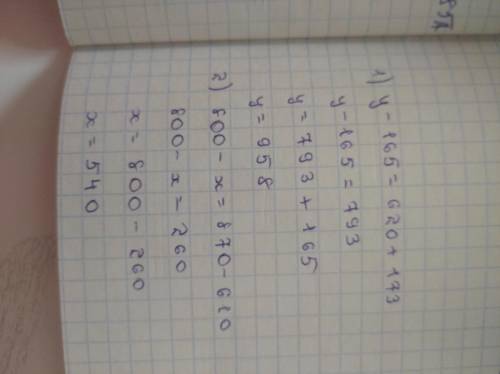 1) y - 165 = 620 + 173
y - 165 = 793
y = 793 + 165
y = 958
2) 800 - x = 870 - 610
800 - x = 260
x = 800 - 260
x = 540